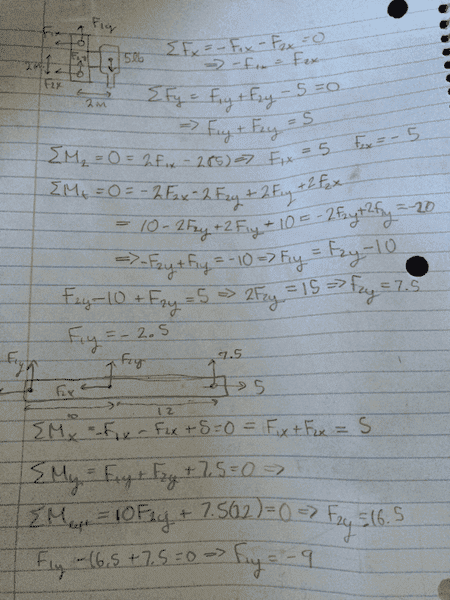 F1y
F1x
5lb
2m
F2x
2m
ΣFx = -F1x - F2x = 0
=> -F1x = F2x
ΣFy = F1y + F2y - 5 = 0
=> F1y + F2y = 5
ΣM2 = 0 = 2F1x - 2(5) => F1x = 5 F2x = -5
ΣM4 = 0 = -2F2x - 2F2y + 2F1y + 2F2x
= 10 - 2F2y + 2F1y + 10 = -2F2y + 2F1y = -20
=> -F2y + F1y = -10 => F1y = F2y - 10
F2y - 10 + F2y = 5 => 2F2y = 15 => F2y = 7.5
F1y = -2.5
F1y F2y 7.5
F2x 5
10 12
ΣMx = -F1x - F2x + 5 = 0 = F1x + F2x = 5
ΣMy = F1y + F2y + 7.5 = 0 =>
ΣM = 10F2y + 7.5(12) = 0 => F2y = 16.5
F1y - 16.5 + 7.5 = 0 => F1y = -9